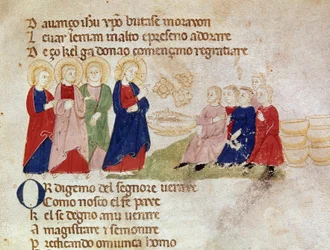 D avanço ihu xpo butase moraxon
L evar le man in alto e preseno adorare
D e ço kel ga donao començano regratiare
OR digemo del segnore verare
C omo nosco el fe pare
K el se degno anu verare
A magistrare e semonire
P redicando omiunca homo